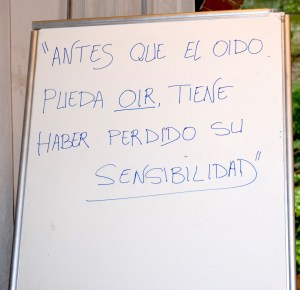 "ANTES QUE EL OIDO
PUEDA OIR, TIENE
HABER PERDIDO SU
SENSIBILIDAD"